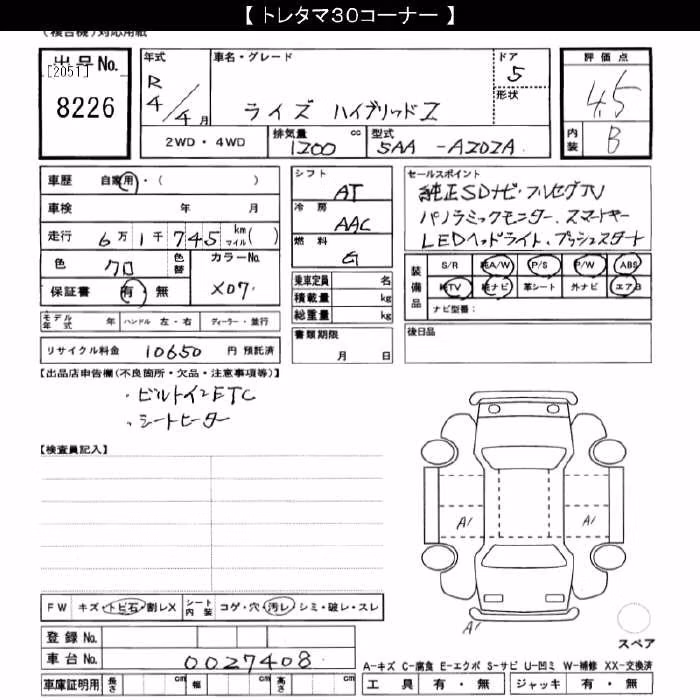 【 トレタマ30コーナー 】
(複合機)対応用紙
出品No. [2051] 8226
年式 R4/4月
車名・グレード ライズ ハイブリッドZ
ドア 5
形状
評価点 4.5
内装 B
2WD・4WD 排気量 1200 cc 型式 5AA -A202A
車歴 自家用・( )
車検 年 月
走行 6万1千745 km マイル( )
色 クロ 色替 カラーNo. X07
保証書 有・無
モデル年式 年 ハンドル 左・右 ディーラー・並行
リサイクル料金 10650 円 預託済
シフト AT
冷房 AAC
燃料 G
乗車定員 名
積載量 kg
総重量 kg
書類期限 月 日
セールスポイント
純正SDナビ・フルセグTV
パノラミックモニター、スマートキー
LEDヘッドライト、プッシュスタート
装備品 S/R 純A/W P/S P/W ABS
純TV 純ナビ 革シート 外ナビ エアB
ナビ型番:
後日品
【出品店申告欄(不良箇所・欠品・注意事項等)】
・ビルトインETC
・シートヒーター
【検査員記入】
A1 A1
A1
スペア
FW キズ・トビ石・割レX シート内装 コゲ・穴・汚レ・シミ・破レ・スレ
登録No.
車台No. 0027408
車庫証明用 長さ cm 幅 cm 高さ cm
A-キズ C-腐食 E-エクボ S-サビ U-凹ミ W-補修 XX-交換済
工具 有・無 ジャッキ 有・無